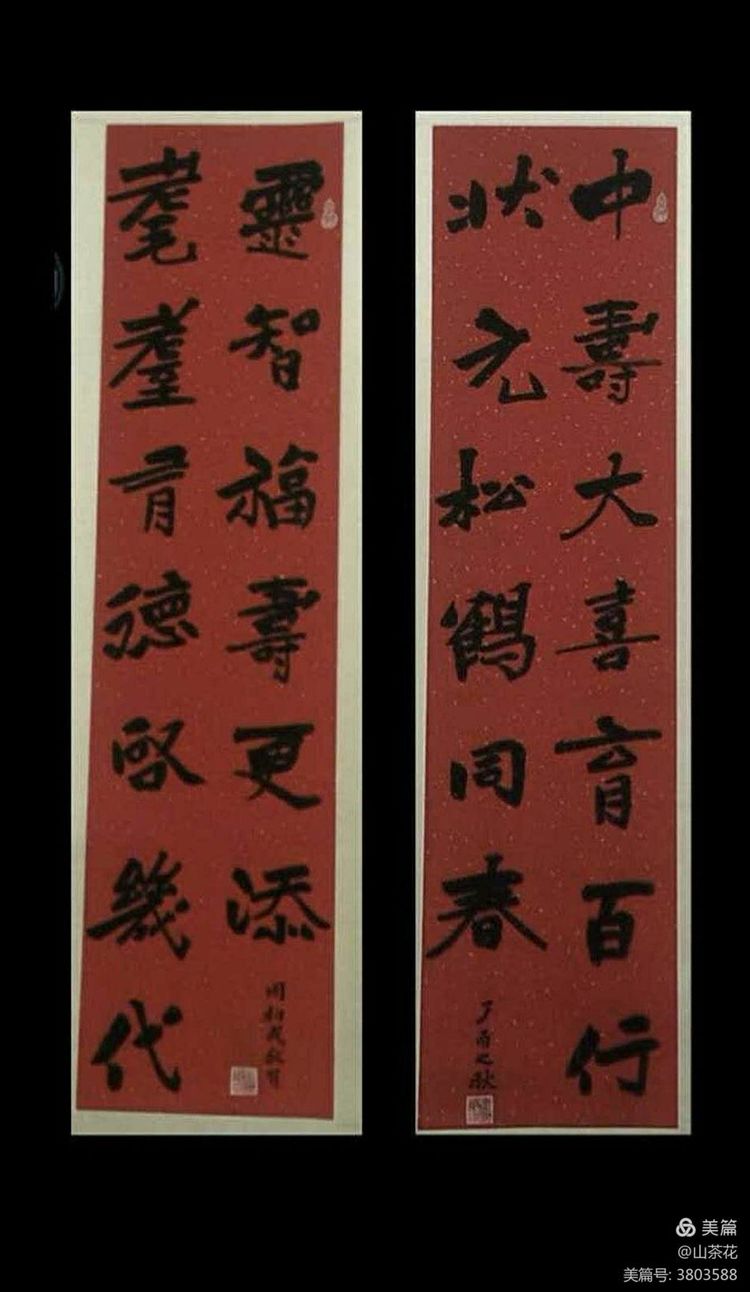 中壽大喜育百行
状元松鶴同春
丁酉之秋
耄耋育德啟幾代
靈智福壽更添
美篇
@山茶花
美篇号: 3803588